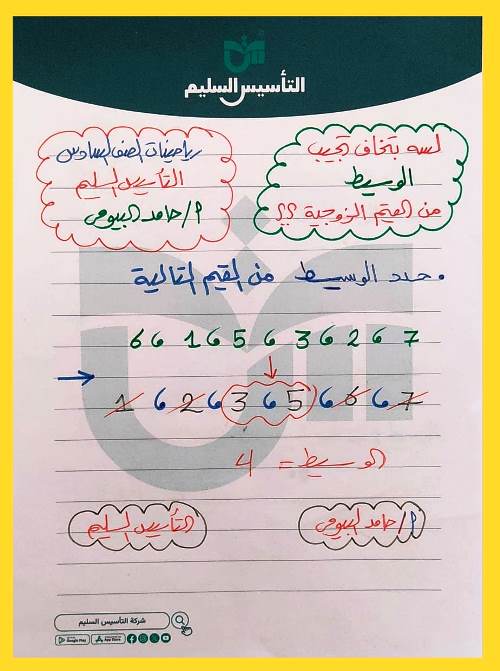 التأسيس السليم
لسه بتخاف تجيب
الوسيط
من القيم الزوجية ؟؟
رياضيات الصف السادس
التأسيس السليم
أ/حامد البيومي
• حدد الوسيط من القيم التالية
6 ، 1 ، 5 ، 3 ، 2 ، 7
1 ، 2 ، 3 ، 5 ، 6 ، 7
الوسيط = 4
أ/حامد البيومي
التأسيس السليم
شركة التأسيس السليم
Google Play
App Store